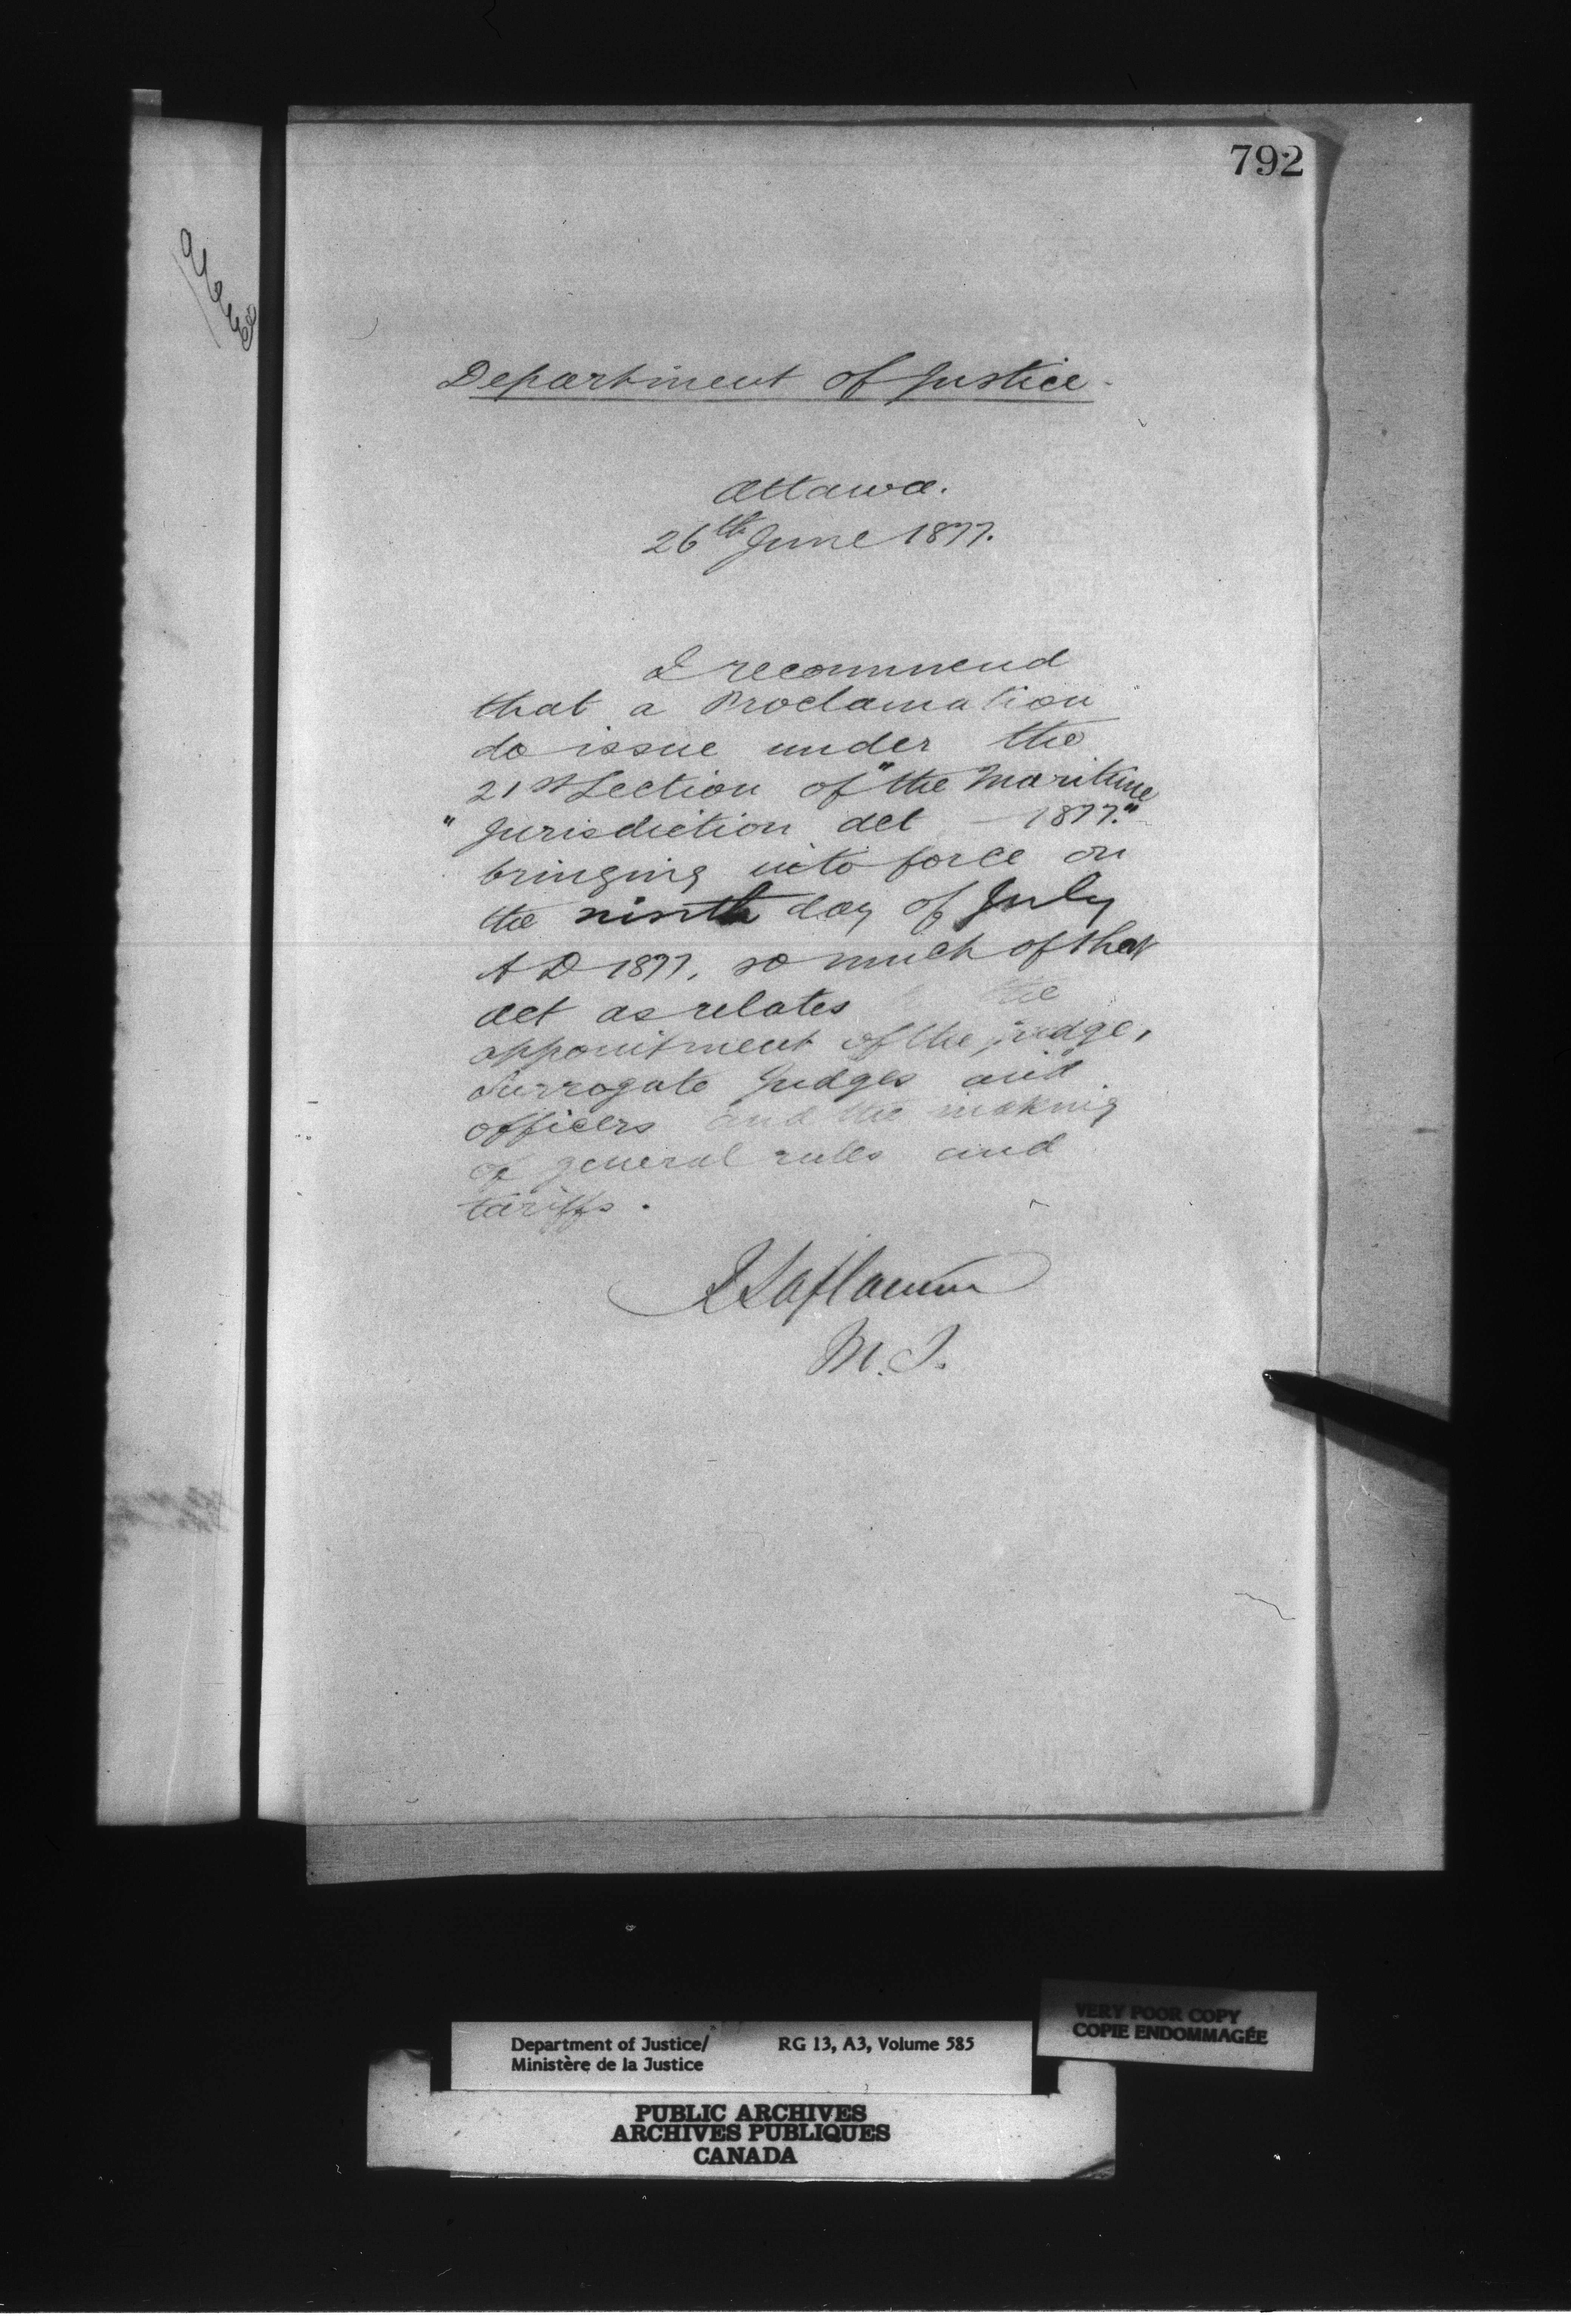 792
Department of Justice.
Ottawa.
26th June 1877.
I recommend
that a Proclamation
do issue under the
21st Section of "the Maritime
" Jurisdiction Act – 1877."
bringing into force on
the ninth day of July
A D 1877, so much of that
Act as relates the
appointment of the judge,
Surrogate Judges and
officers and the making
of general rules and
tariffs.
R Laflamme
M. J.
VERY POOR COPY
COPIE ENDOMMAGÉE
Department of Justice/ RG 13, A3, Volume 585
Ministère de la Justice
PUBLIC ARCHIVES
ARCHIVES PUBLIQUES
CANADA